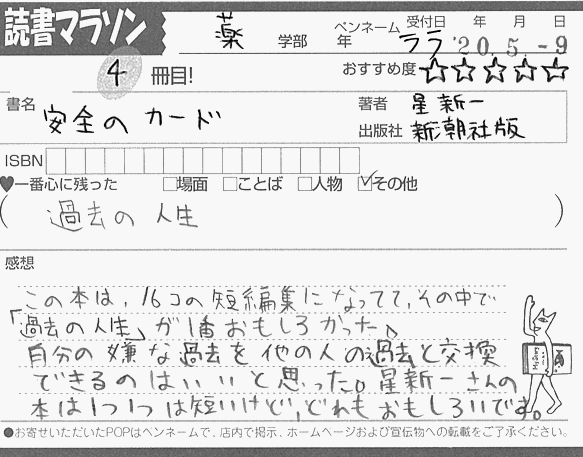 読書マラソン
薬 学部 年 ペンネーム ララ 受付日 年 月 日
'20.5.-9
4 冊目! おすすめ度 ☆☆☆☆☆
書名 安全のカード 著者 星新一
出版社 新潮社版
ISBN
♥一番心に残った □場面 □ことば □人物 ☑その他
( 過去の人生 )
感想
この本は、16コの短編集になってて、その中で
「過去の人生」が1番おもしろかった。
自分の嫌な過去を他の人の過去と交換
できるのはいいと思った。星新一さんの
本は1つ1つは短いけど、どれもおもしろいです。
●お寄せいただいたPOPはペンネームで、店内で掲示、ホームページおよび宣伝物への転載をご了承ください。